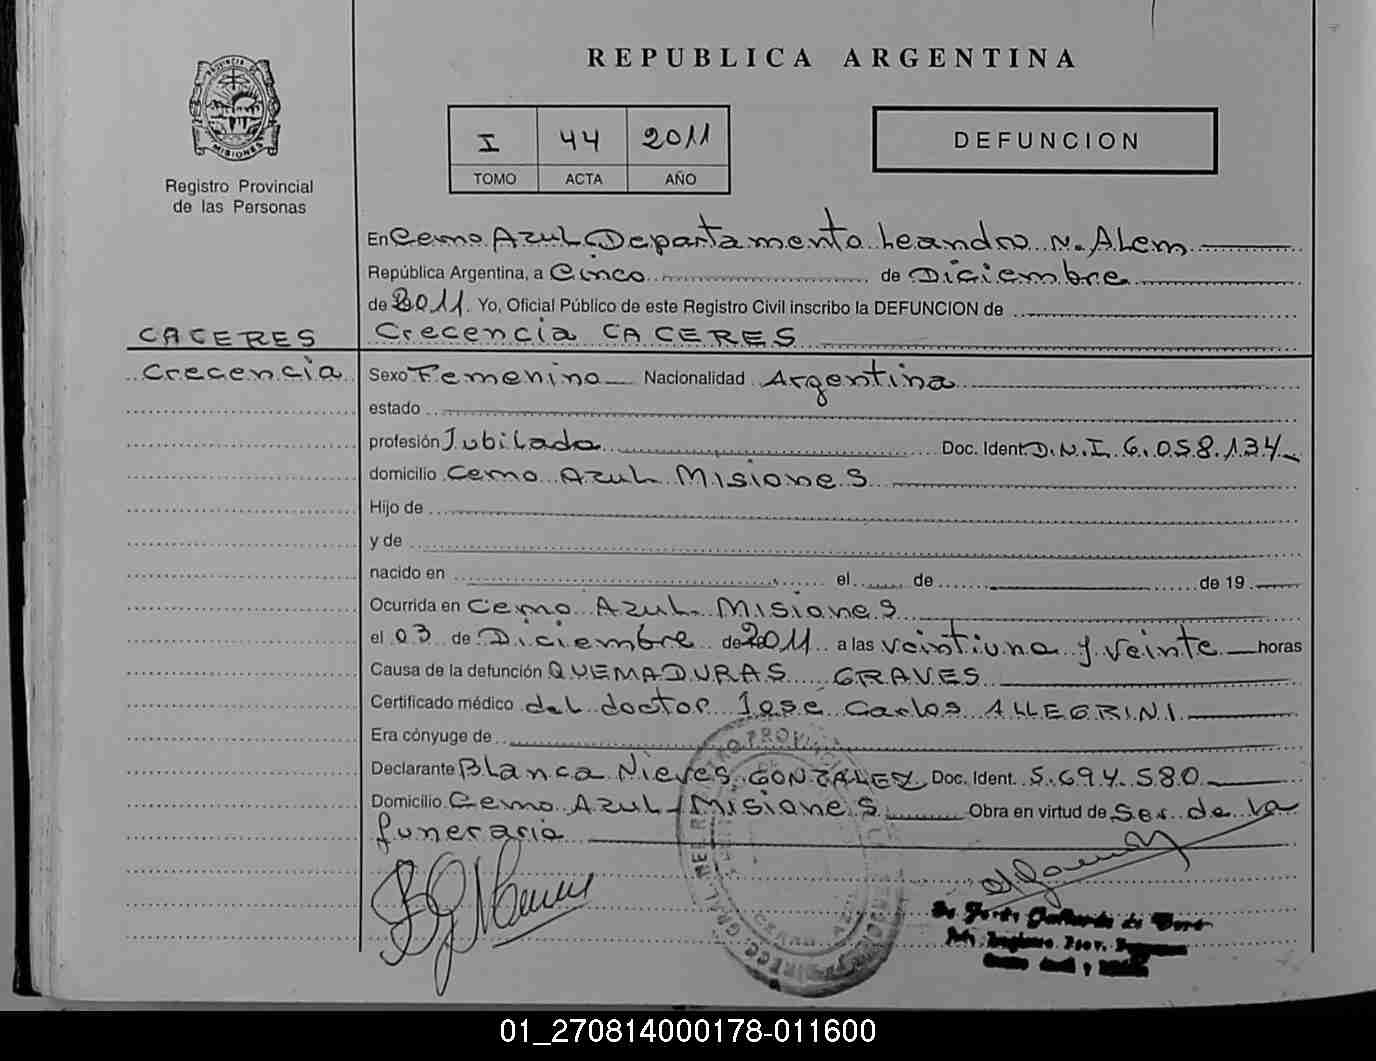 REPUBLICA ARGENTINA
PROVINCIA DE
MISIONES
Registro Provincial
de las Personas
I 44 2011
TOMO ACTA AÑO
DEFUNCION
En Cerro Azul Departamento Leandro N. Alem
República Argentina, a Cinco de Diciembre
de 2011. Yo, Oficial Público de este Registro Civil inscribo la DEFUNCION de
CACERES Crecencia CACERES
Crecencia Sexo Femenino Nacionalidad Argentina
estado
profesión Jubilada Doc. Ident. D.N.I. 6.058.134
domicilio Cerro Azul Misiones
Hijo de
y de
nacido en el de de 19
Ocurrida en Cerro Azul Misiones
el 03 de Diciembre de 2011 a las veintiuna y veinte horas
Causa de la defunción QUEMADURAS GRAVES
Certificado médico del doctor Jose Carlos ALLEGRINI
Era cónyuge de
Declarante Blanca Nieves GONZALEZ Doc. Ident. 5.694.580
Domicilio Cerro Azul - Misiones Obra en virtud de Ser de la
funeraria
01_270814000178-011600